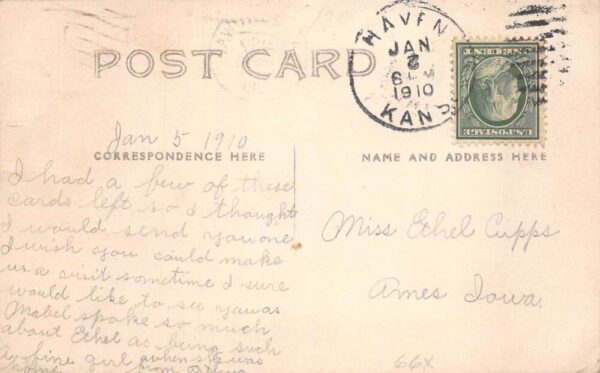 POST CARD
HAVEN
JAN
6
1910
KANS
U.S. POSTAGE
Jan 5 1910
CORRESPONDENCE HERE
I had a few of these
cards left so I thought
I would send you one
I wish you could make
us a visit sometime I sure
would like to see you as
Mabel spoke so much
about Ethel as being such
a fine girl when she was
home from
NAME AND ADDRESS HERE
Miss Ethel Cupps
Ames Iowa.
66X